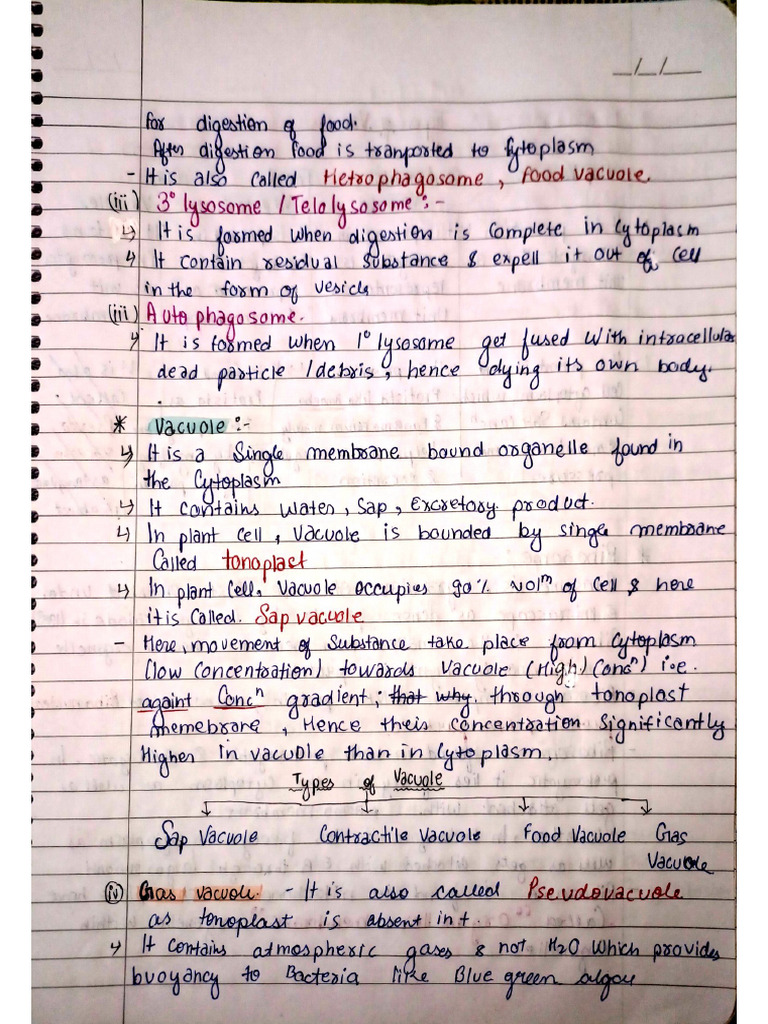 __/__/___
for digestion of food.
After digestion food is tranported to Cytoplasm
- It is also called Hetrophagosome, food vacuole.
(iii) 3° lysosome / Telolysosome :-
↳ It is formed when digestion is complete in Cytoplasm
↳ It contain residual substance & expell it out of cell
in the form of vesicle
(iii) Autophagosome.
↳ It is formed when 1° lysosome get fused with intracellular
dead particle / debris, hence dying its own body.
* Vacuole :-
↳ It is a Single membrane bound organelle found in
the Cytoplasm
↳ It contains water, Sap, Excretory product.
↳ In plant cell, vacuole is bounded by single membrane
Called tonoplast
↳ In plant cell, vacuole occupies 90% volᵐ of cell & here
it is called. Sap vacuole
- Here, movement of substance take place from Cytoplasm
(low concentration) towards vacuole (High) (Concⁿ) i.e.
againt Concⁿ gradient; that why through tonoplast
memebrane, Hence theis concentration significantly
Higher in vacuole than in Cytoplasm.
Types of Vacuole
Sap Vacuole Contractile Vacuole Food Vacuole Gas
Vacuole
(iv) Gas vacuole. - It is also called Pseudovacuole
as tonoplast is absent in t.
↳ It contains atmospheric gases & not H2O which provides
buoyancy to Bacteria like Blue green algae